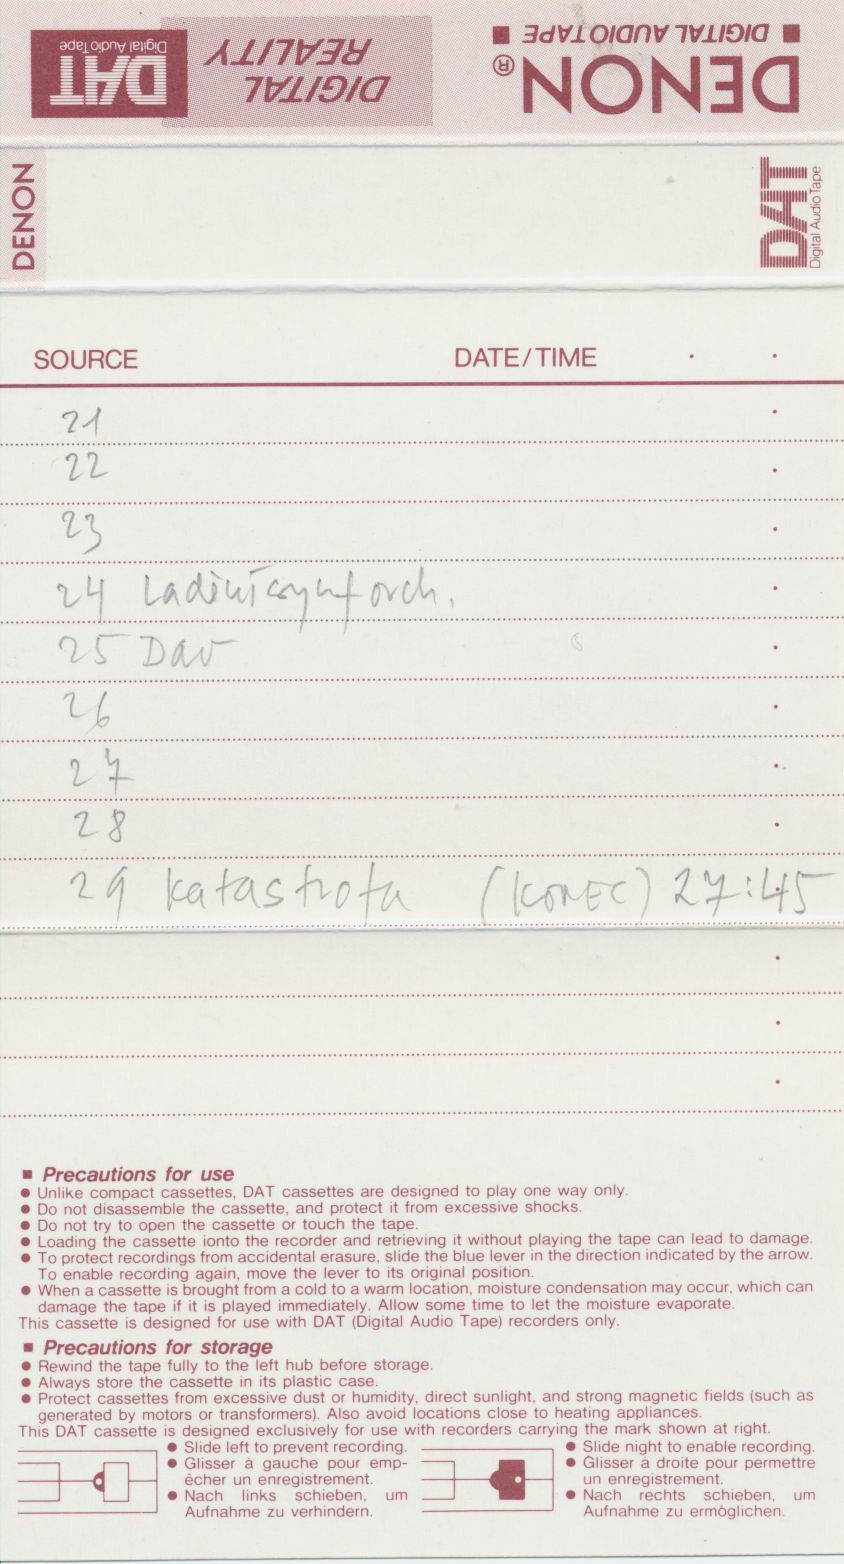 DIGITAL AUDIO TAPE
DENON®
DIGITAL
REALITY
DAT
Digital Audio Tape
DENON
DAT
Digital Audio Tape
SOURCE DATE/TIME
21
22
23
24 Ladění symf orch.
25 Dav
26
27
28
29 Katastrofa (KONEC) 27:45
■ Precautions for use
● Unlike compact cassettes, DAT cassettes are designed to play one way only.
● Do not disassemble the cassette, and protect it from excessive shocks.
● Do not try to open the cassette or touch the tape.
● Loading the cassette ionto the recorder and retrieving it without playing the tape can lead to damage.
● To protect recordings from accidental erasure, slide the blue lever in the direction indicated by the arrow.
To enable recording again, move the lever to its original position.
● When a cassette is brought from a cold to a warm location, moisture condensation may occur, which can
damage the tape if it is played immediately. Allow some time to let the moisture evaporate.
This cassette is designed for use with DAT (Digital Audio Tape) recorders only.
■ Precautions for storage
● Rewind the tape fully to the left hub before storage.
● Always store the cassette in its plastic case.
● Protect cassettes from excessive dust or humidity, direct sunlight, and strong magnetic fields (such as
generated by motors or transformers). Also avoid locations close to heating appliances.
This DAT cassette is designed exclusively for use with recorders carrying the mark shown at right.
● Slide left to prevent recording.
● Glisser à gauche pour emp-
écher un enregistrement.
● Nach links schieben, um
Aufnahme zu verhindern.
● Slide night to enable recording.
● Glisser à droite pour permettre
un enregistrement.
● Nach rechts schieben, um
Aufnahme zu ermöglichen.